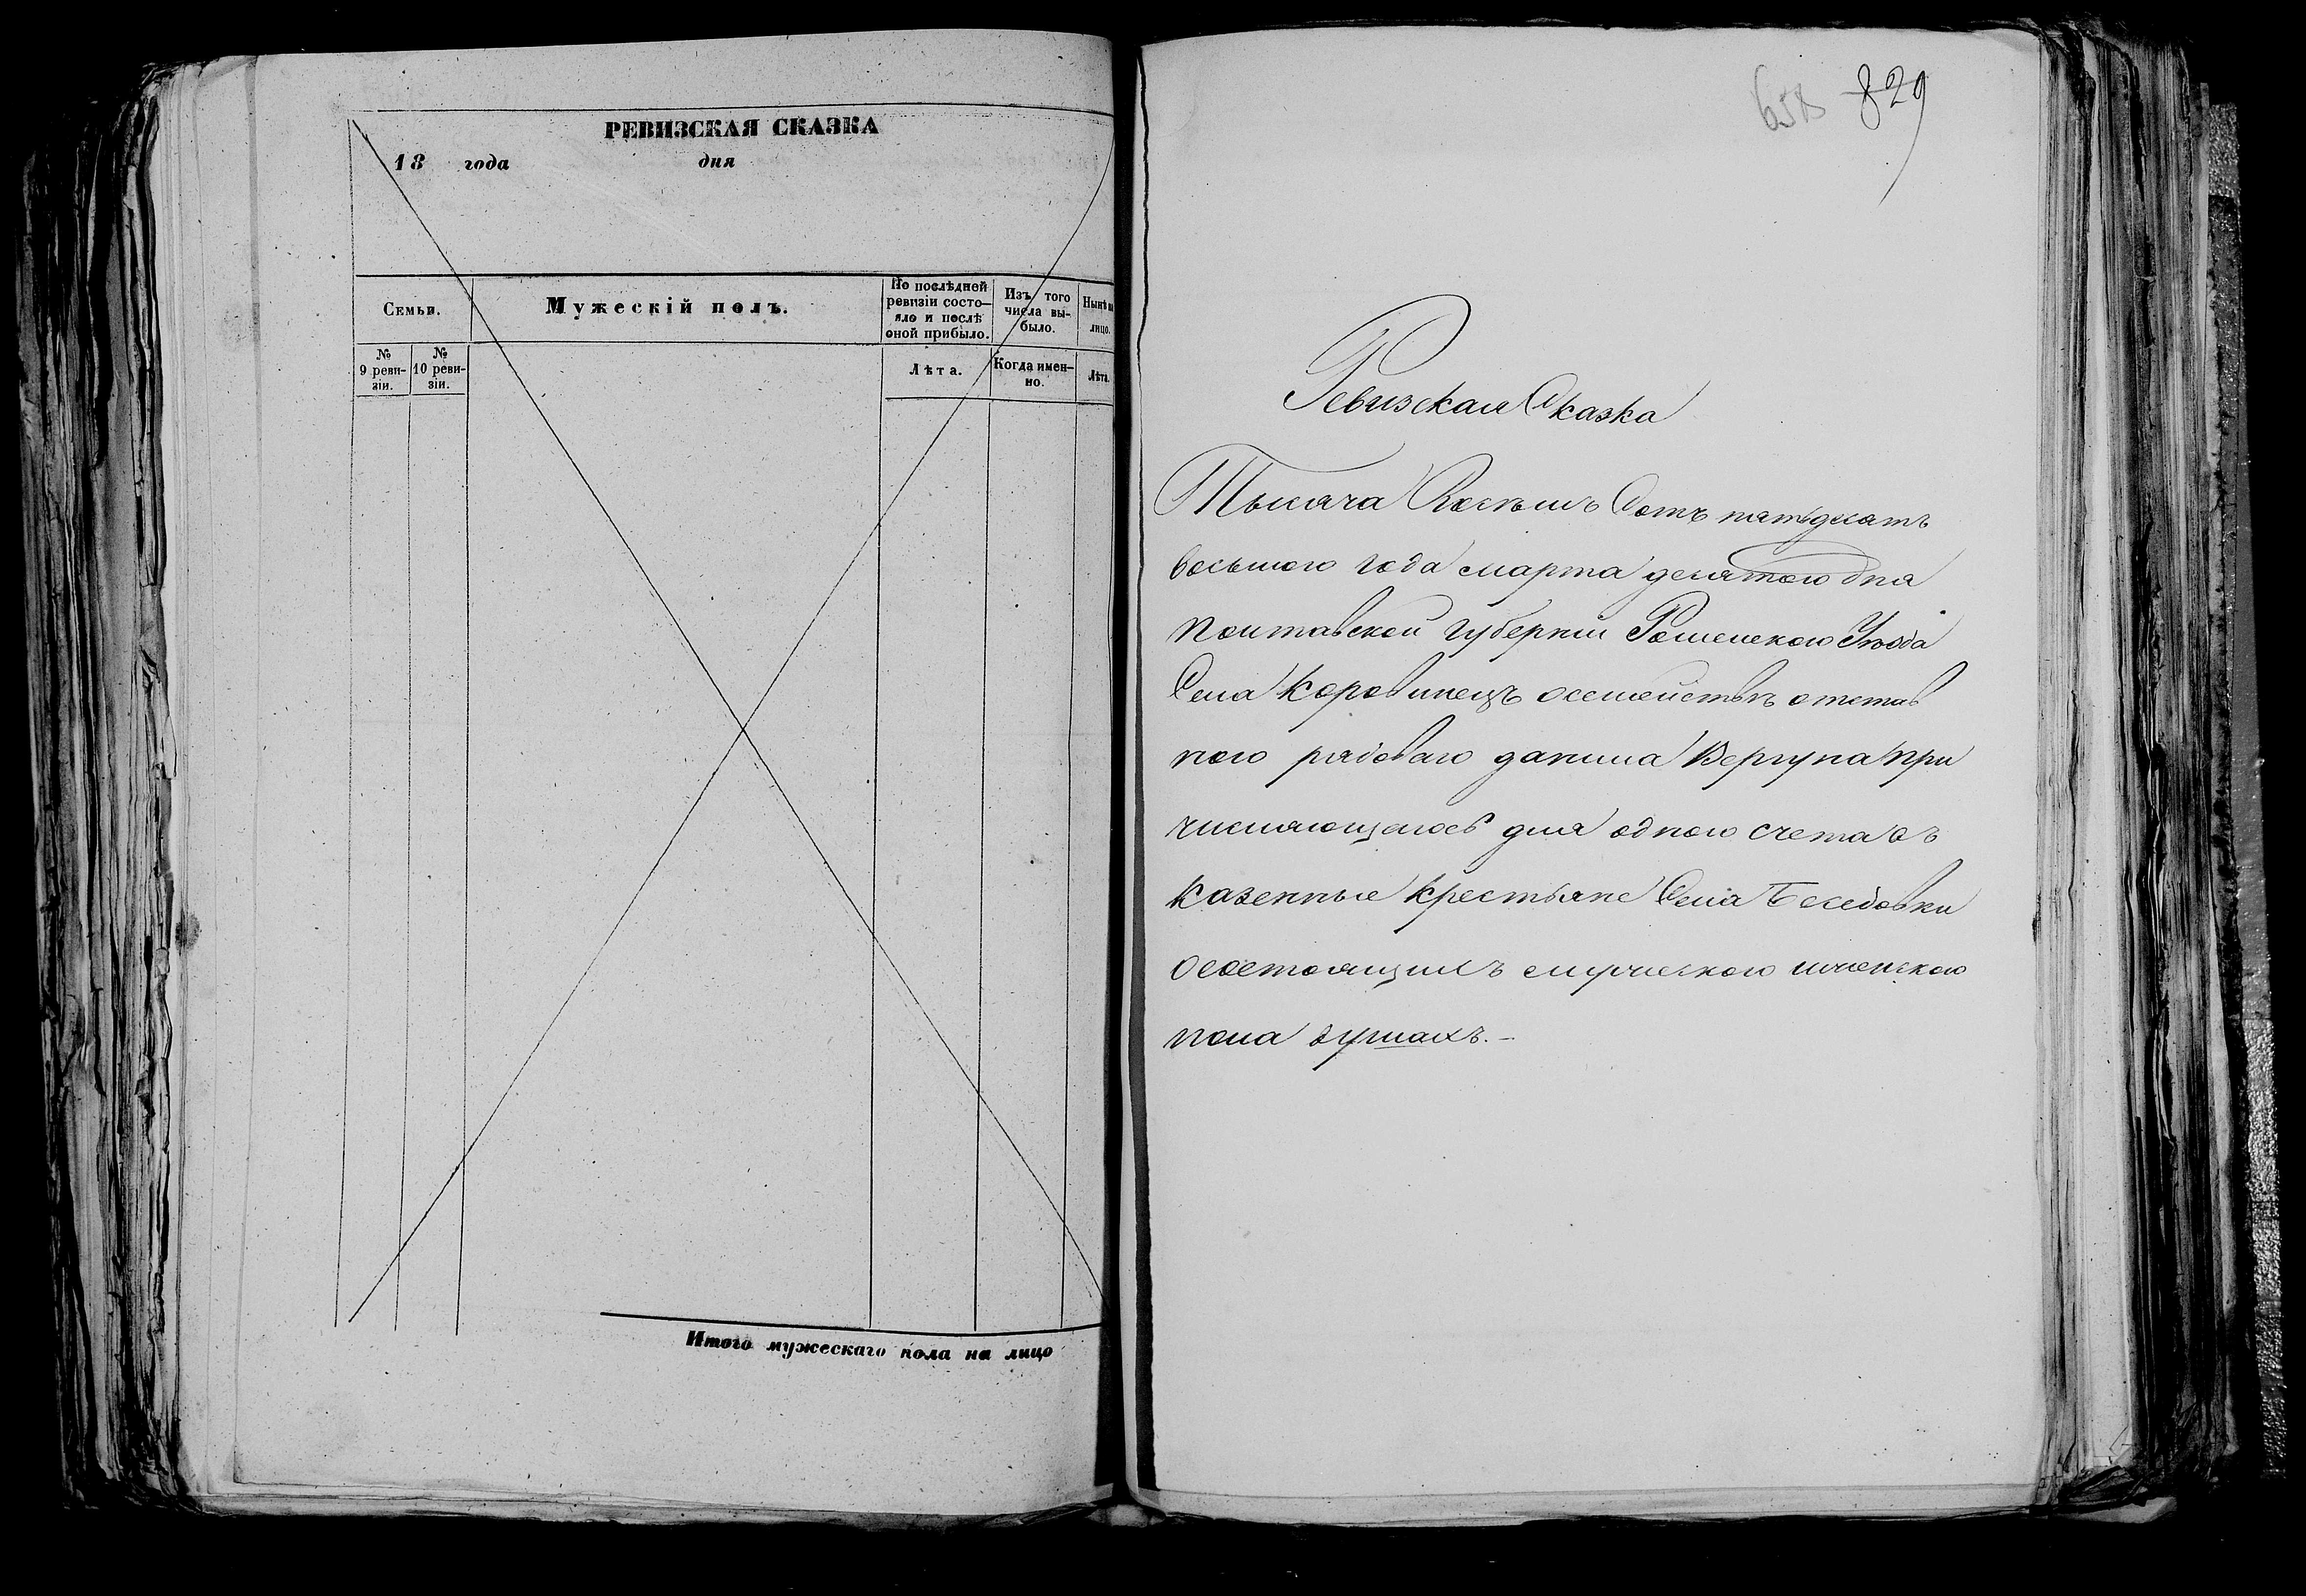 РЕВИЗСКАЯ СКАЗКА
18 года дня
Семьи.
Мужескій полъ.
По послѣдней
ревизіи состо-
яло и послѣ
оной прибыло.
Изъ того
числа вы-
было.
Нынѣ на
лицо.
№
9 реви-
зіи.
№
10 реви-
зіи.
Лѣта.
Когда имен-
но.
Лѣта.
Итого мужескаго пола на лицо
658 829
Ревизская Сказка
Тысяча Восѣмъ Сотъ пятьдсатъ
восьмого года марта десятого дня
Полтавской губерніи Роменского Уѣзда
Села Коровинецъ осемействѣ отстав
ного рядоваго данила Вергуна при
числяющегося для одного счета въ
казенные крестьяне Села Беседовки
осостоящихъ мужеского иженского
пола душахъ.-